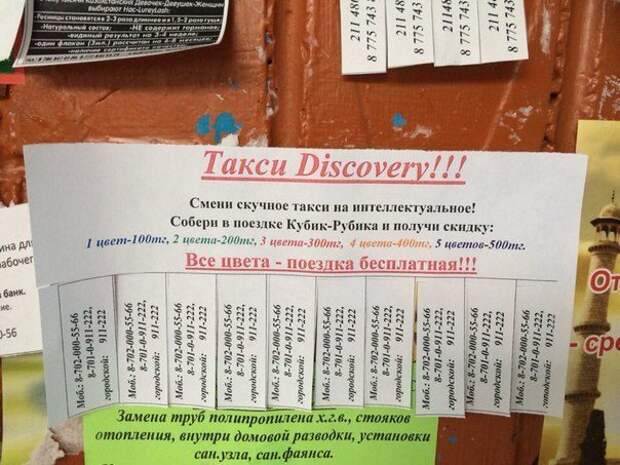 выбирают Hac-LureyLash!
-Ресницы становятся в 2-3 раза длиннее и 1, 5-2 раза гуще!
-Натуральный состав: -НЕ содержит гормонов
-видимый результат на 3-4 неделе;
-один флакон (3мл.) рассчитан на 6-8 месяцев;
211 48
8 775 743
211 48
8 775 743
211 48
8 775 743
211 48
8 775 743
Такси Discovery!!!
Смени скучное такси на интеллектуальное!
Собери в поездке Кубик-Рубика и получи скидку:
1 цвет-100тг, 2 цвета-200тг, 3 цвета-300тг, 4 цвета-400тг, 5 цветов-500тг.
Все цвета - поездка бесплатная!!!
Моб.: 8-702-000-55-66
8-701-0-911-222,
городской: 911-222
Моб.: 8-702-000-55-66
8-701-0-911-222,
городской: 911-222
Моб.: 8-702-000-55-66
8-701-0-911-222,
городской: 911-222
Моб.: 8-702-000-55-66
8-701-0-911-222,
городской: 911-222
Моб.: 8-702-000-55-66
8-701-0-911-222,
городской: 911-222
Моб.: 8-702-000-55-66
8-701-0-911-222,
городской: 911-222
Моб.: 8-702-000-55-66
8-701-0-911-222,
городской: 911-222
Моб.: 8-702-000-55-66
8-701-0-911-222,
городской: 911-222
Моб.: 8-702-000-55-66
8-701-0-911-222,
городской: 911-222
Моб.: 8-702-000-55-66
8-701-0-911-222,
городской: 911-222
ина для
рабочего
банк.
ие.
0-56
От
- сре
Замена труб полипропилена х.г.в., стояков
отопления, внутри домовой разводки, установки
сан.узла, сан.фаянса.